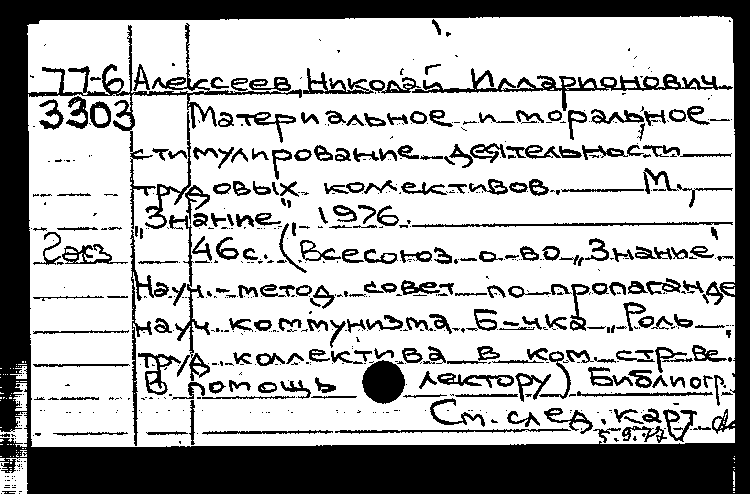 77-6 Алексеев, Николай Илларионович.
3303 Материальное и моральное
стимулирование деятельности
трудовых коллективов. М.,
„Знание“, 1976.
2 экз 46 с. (Всесоюз. о-во „Знание“.
Науч.-метод. совет по пропаганде
науч. коммунизма. Б-чка „Роль
труд. коллектива в ком. стр-ве.
В помощь лектору) Библиогр.:
См. след. карт.
5.9.77